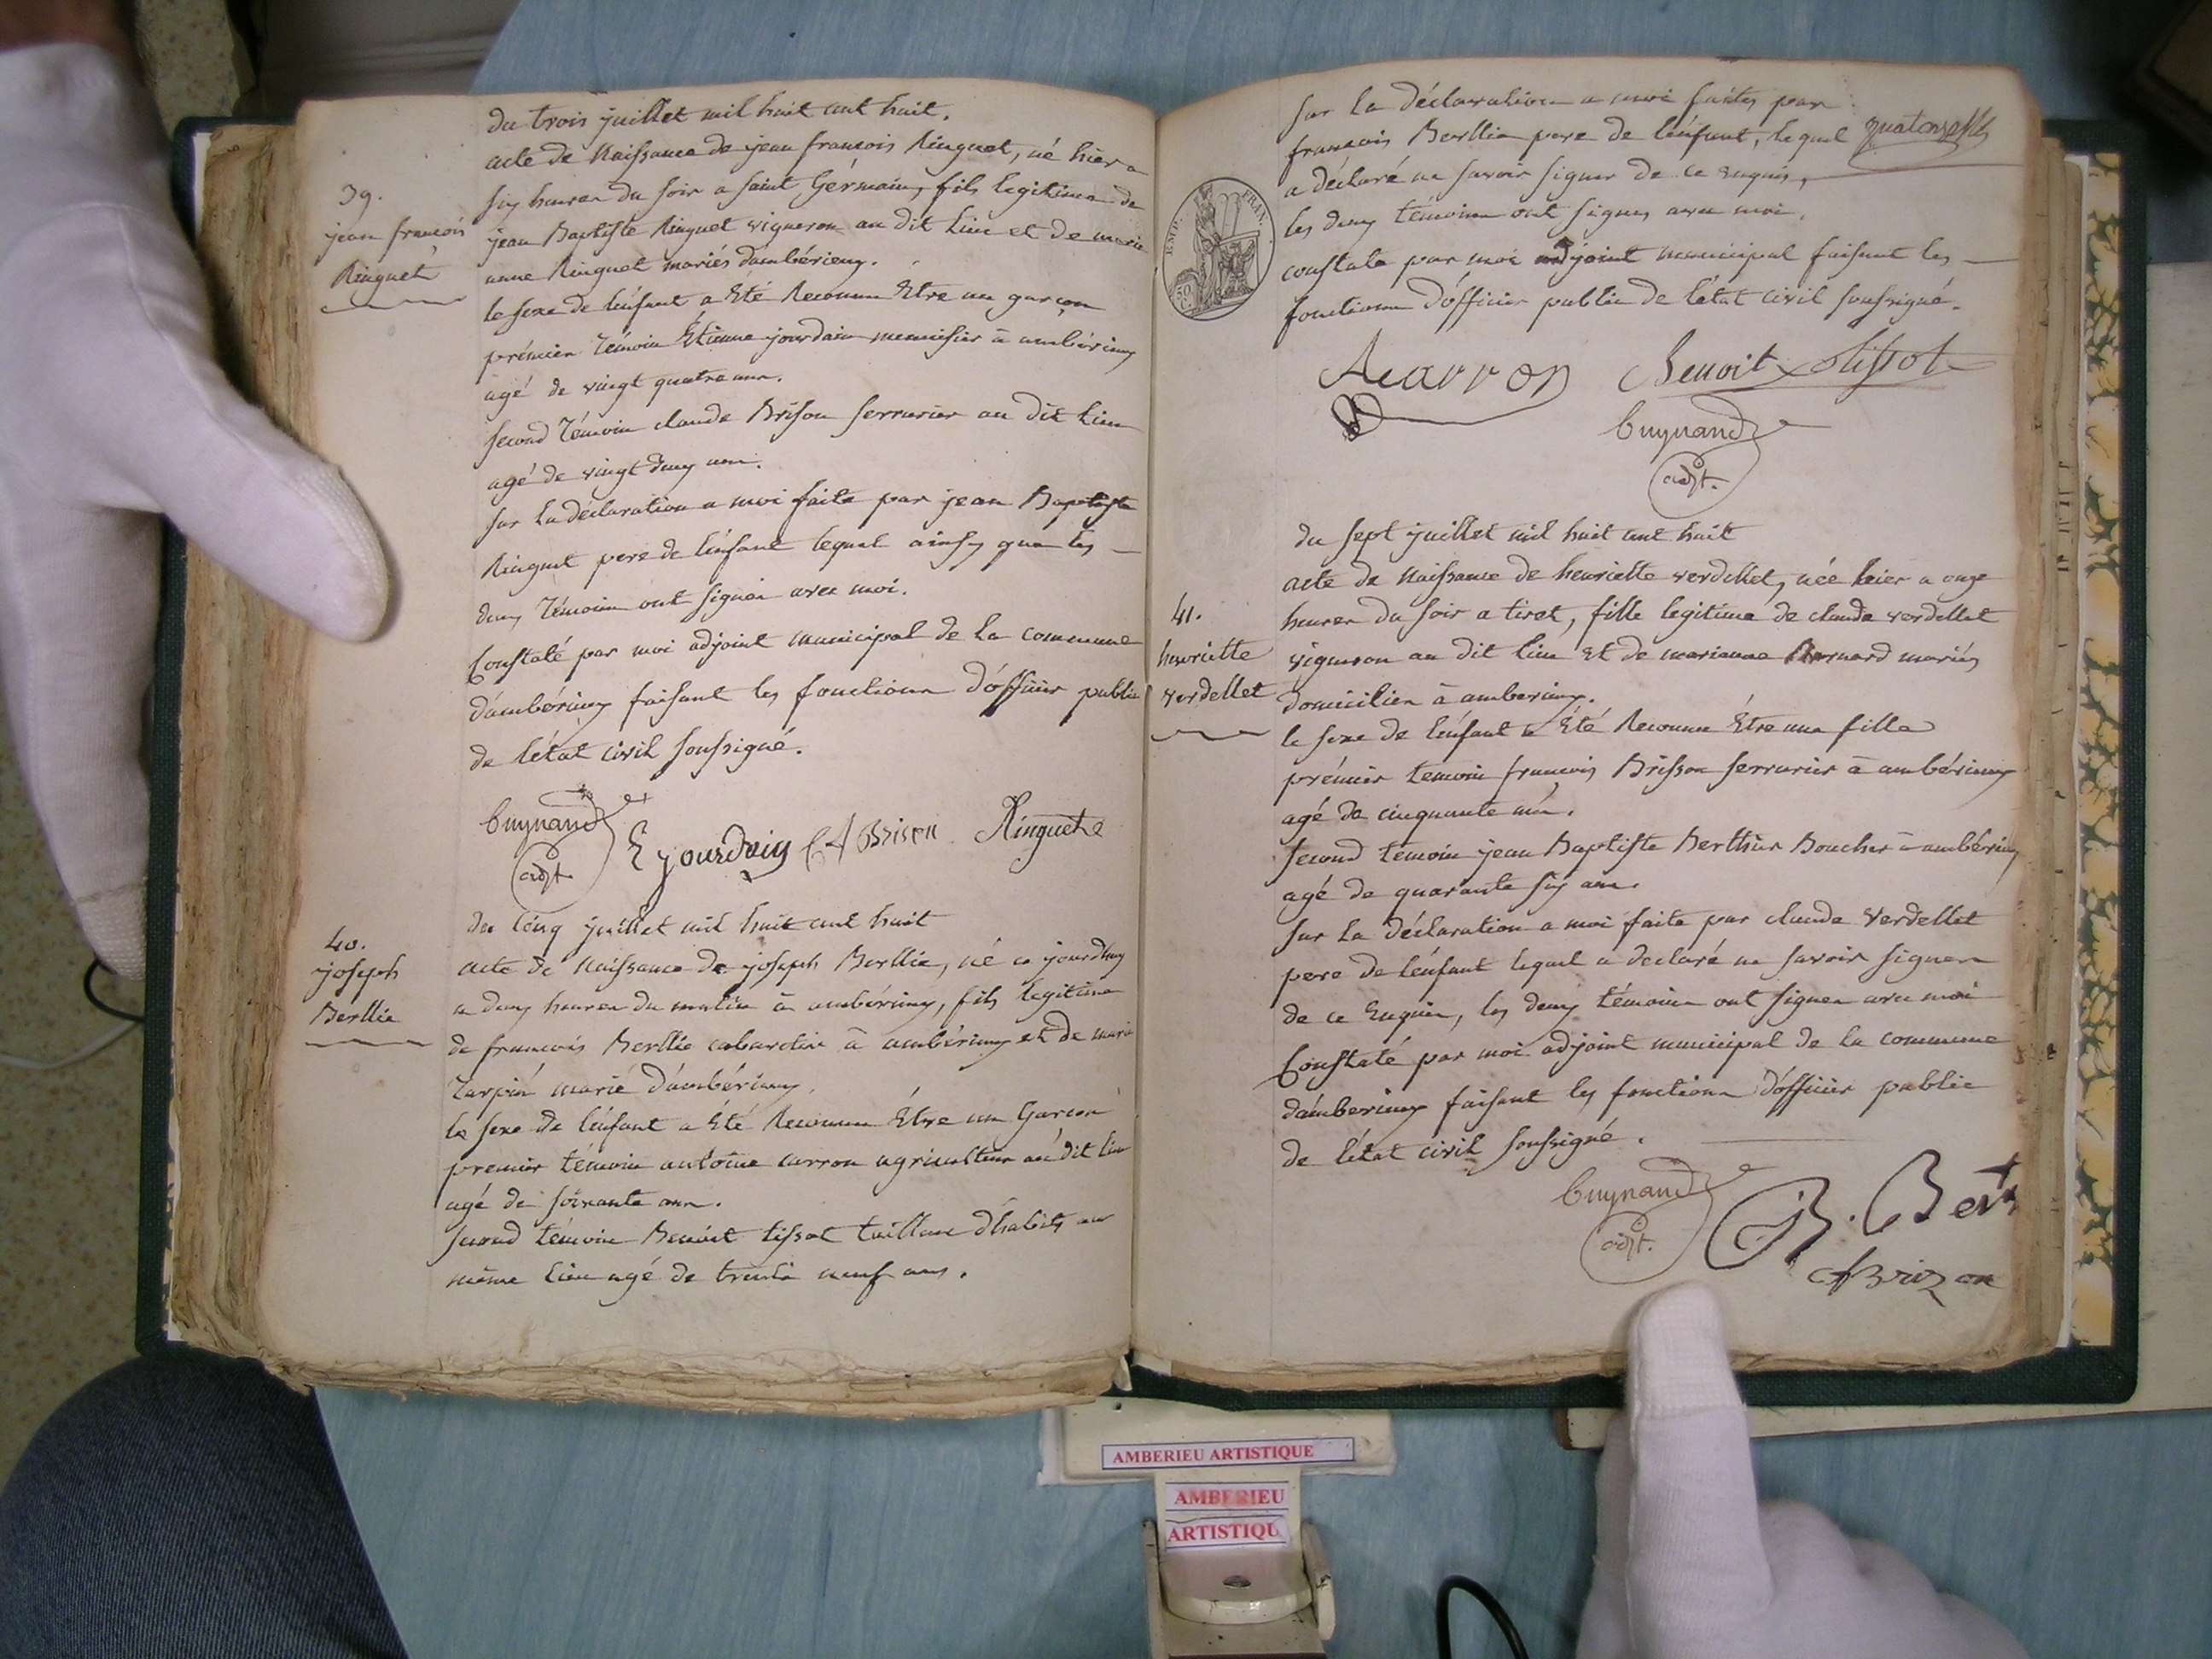 du trois juillet mil huit cent huit.
acte de Naissance de jean francois Ringuet, né hier a
six heures du soir a Saint Germain, fils legitime de
jean Baptiste Ringuet vigneron au dit Lieu et de marie
anne Ringuet mariés d'ambérieux.
le sexe de l'enfant a Eté Reconnu Etre un garçon
prémier Témoin Etienne jourdain menuisier à ambérieux
agé de vingt quatre ans.
second Témoin claude Brison serrurier au dit Lieu
agé de vingt deux ans.
sur La déclaration a moi faite par jean Baptiste
Ringuet pere de l'enfant lequel ainsy que les
deux Témoins ont signés avec moi.
Constaté par moi adjoint municipal de La commune
d'ambérieux faisant les fonctions d'officier public
de l'état civil soussigné.
39.
jean francois
Ringuet
Guynand
adjt.
E jourdain
Brison
Ringuet
du Cinq juillet mil huit cent huit
acte de Naissance de joseph Berllie, né ce jourdhuy
a deux heures du matin à ambérieux, fils legitime
de francois Berllie cabaretier à ambérieux et de marie
Tarpin marié d'ambérieux.
le sexe de l'enfant a Eté Reconnu Etre un Garcon
premier témoin antoine carron agriculteur au dit lieu
agé de soixante ans.
second témoin Benoit tissot tailleur d'habits au
même Lieu agé de trente neuf ans.
40.
joseph
Berllie
sur la déclaration a moi faites par
francois Berllie pere de l'enfant, lequel
a déclaré ne savoir signer de ce enquis,
les deux témoins ont signés avec moi.
constate par moi adjoint municipal faisant les
fonctions d'officier public de l'état civil soussigné.
EMP. FRAN.
Acarron
Benoit tissot
Guynand
adjt.
du sept juillet mil huit cent huit
acte de Naissance de henriette verdellet, née hier a onze
heures du soir a tiret, fille legitime de claude verdellet
vigneron au dit lieu et de marianne Bernard mariés
domiciliés à amberieux.
le sexe de l'enfant a Eté Reconnu Etre une fille
prémier temoin francois Brisson serrurier à ambérieux
agé de cinquante ans.
second temoin jean Baptiste Berthier Boucher à ambérieux
agé de quarante six ans.
sur La déclaration a moi faite par claude Verdellet
pere de l'enfant lequel a declaré ne savoir signer
de ce Enquis, les deux témoins ont signer avec moi
Constaté par moi adjoint municipal de La commune
d'amberieux faisant les fonctions d'officier public
de l'état civil soussigné.
41.
henriette
verdellet
Guynand
adjt.
B. Bert
Brizon
AMBERIEU ARTISTIQUE
AMBERIEU
ARTISTIQU